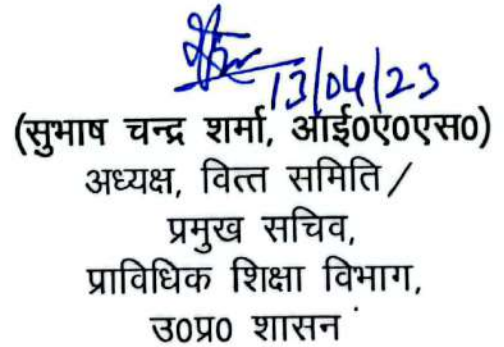 13/04/23
(सुभाष चन्द्र शर्मा, आई0ए0एस0)
अध्यक्ष, वित्त समिति /
प्रमुख सचिव,
प्राविधिक शिक्षा विभाग,
उ0प्र0 शासन